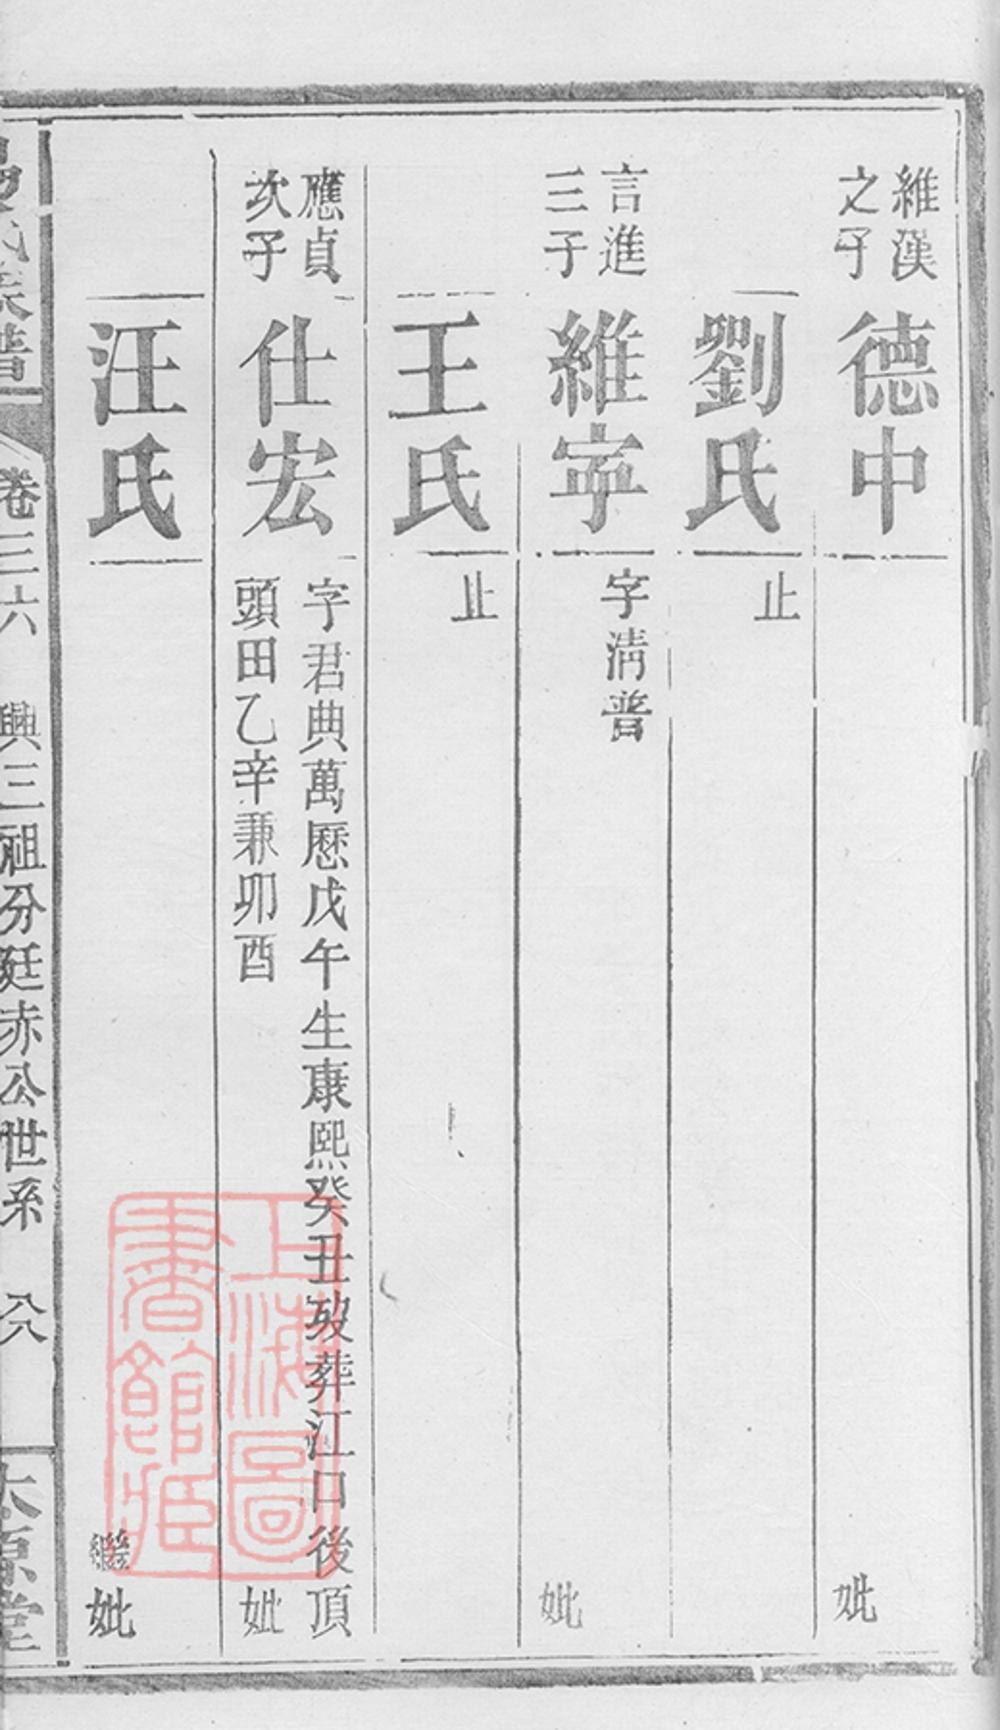 維漢
之子
德中
妣
劉氏
止
言進
三子
維寍
字淸普
妣
王氏
止
應貞
次子
仕宏
字君典萬歷戊午生康熙癸丑歿葬江口後頂
頭田乙辛兼卯酉
妣
汪氏
繼
妣
氏族譜
卷三六
興三祖分廷赤公世系
八八
太原堂
上海圖
書館藏